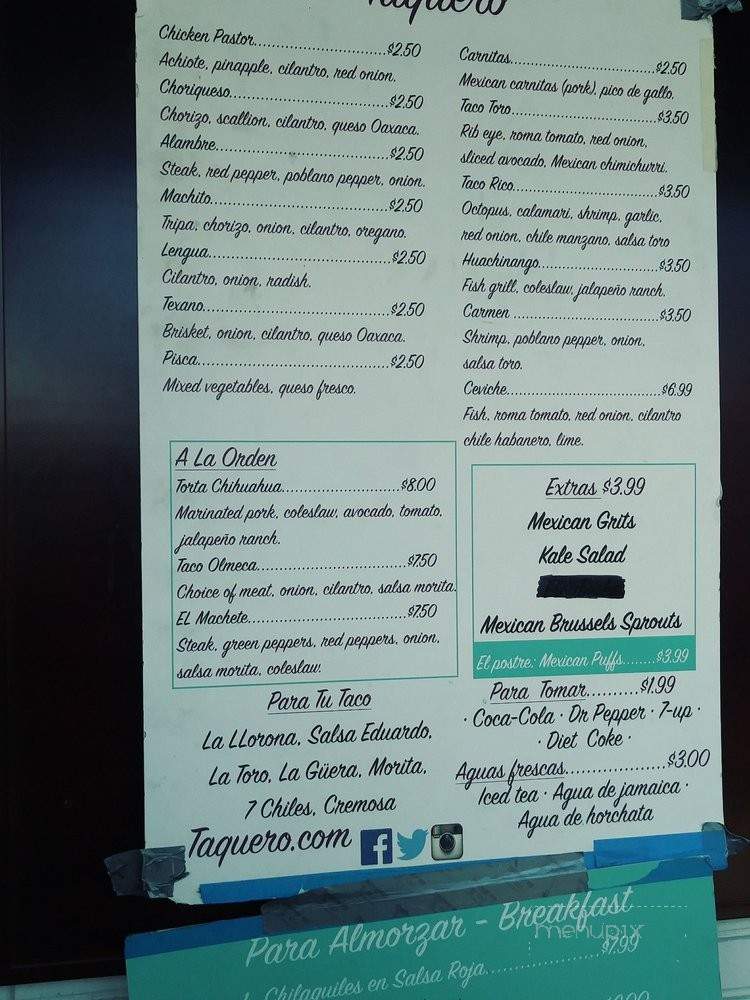 Taquero
Chicken Pastor..............................$2.50
Achiote, pinapple, cilantro, red onion.
Choriqueso..............................$2.50
Chorizo, scallion, cilantro, queso Oaxaca.
Alambre..............................$2.50
Steak, red pepper, poblano pepper, onion.
Machito..............................$2.50
Tripa, chorizo, onion, cilantro, oregano.
Lengua..............................$2.50
Cilantro, onion, radish.
Texano..............................$2.50
Brisket, onion, cilantro, queso Oaxaca.
Pisca..............................$2.50
Mixed vegetables, queso fresco.
Carnitas..............................$2.50
Mexican carnitas (pork), pico de gallo,
Taco Toro..............................$3.50
Rib eye, roma tomato, red onion,
sliced avocado, Mexican chimichurri.
Taco Rico..............................$3.50
Octopus, calamari, shrimp, garlic,
red onion, chile manzano, salsa toro
Huachinango..............................$3.50
Fish grill, coleslaw, jalapeño ranch.
Carmen..............................$3.50
Shrimp, poblano pepper, onion,
salsa toro.
Ceviche..............................$6.99
Fish, roma tomato, red onion, cilantro
chile habanero, lime.
A La Orden
Torta Chihuahua..............................$8.00
Marinated pork, coleslaw, avocado, tomato,
jalapeño ranch.
Taco Olmeca..............................$7.50
Choice of meat, onion, cilantro, salsa morita.
EL Machete..............................$7.50
Steak, green peppers, red peppers, onion,
salsa morita, coleslaw.
Extras $3.99
Mexican Grits
Kale Salad
Mexican Brussels Sprouts
El postre: Mexican Puffs........$3.99
Para Tu Taco
La LLorona, Salsa Eduardo,
La Toro, La Güera, Morita,
7 Chiles, Cremosa
Para Tomar..........$1.99
· Coca-Cola · Dr Pepper · 7-up ·
· Diet Coke ·
Aguas frescas....................$3.00
Iced tea · Agua de jamaica ·
Agua de horchata
Taquero.com
Para Almorzar - Breakfast
menupix
$7.99
Chilaquiles en Salsa Roja....................